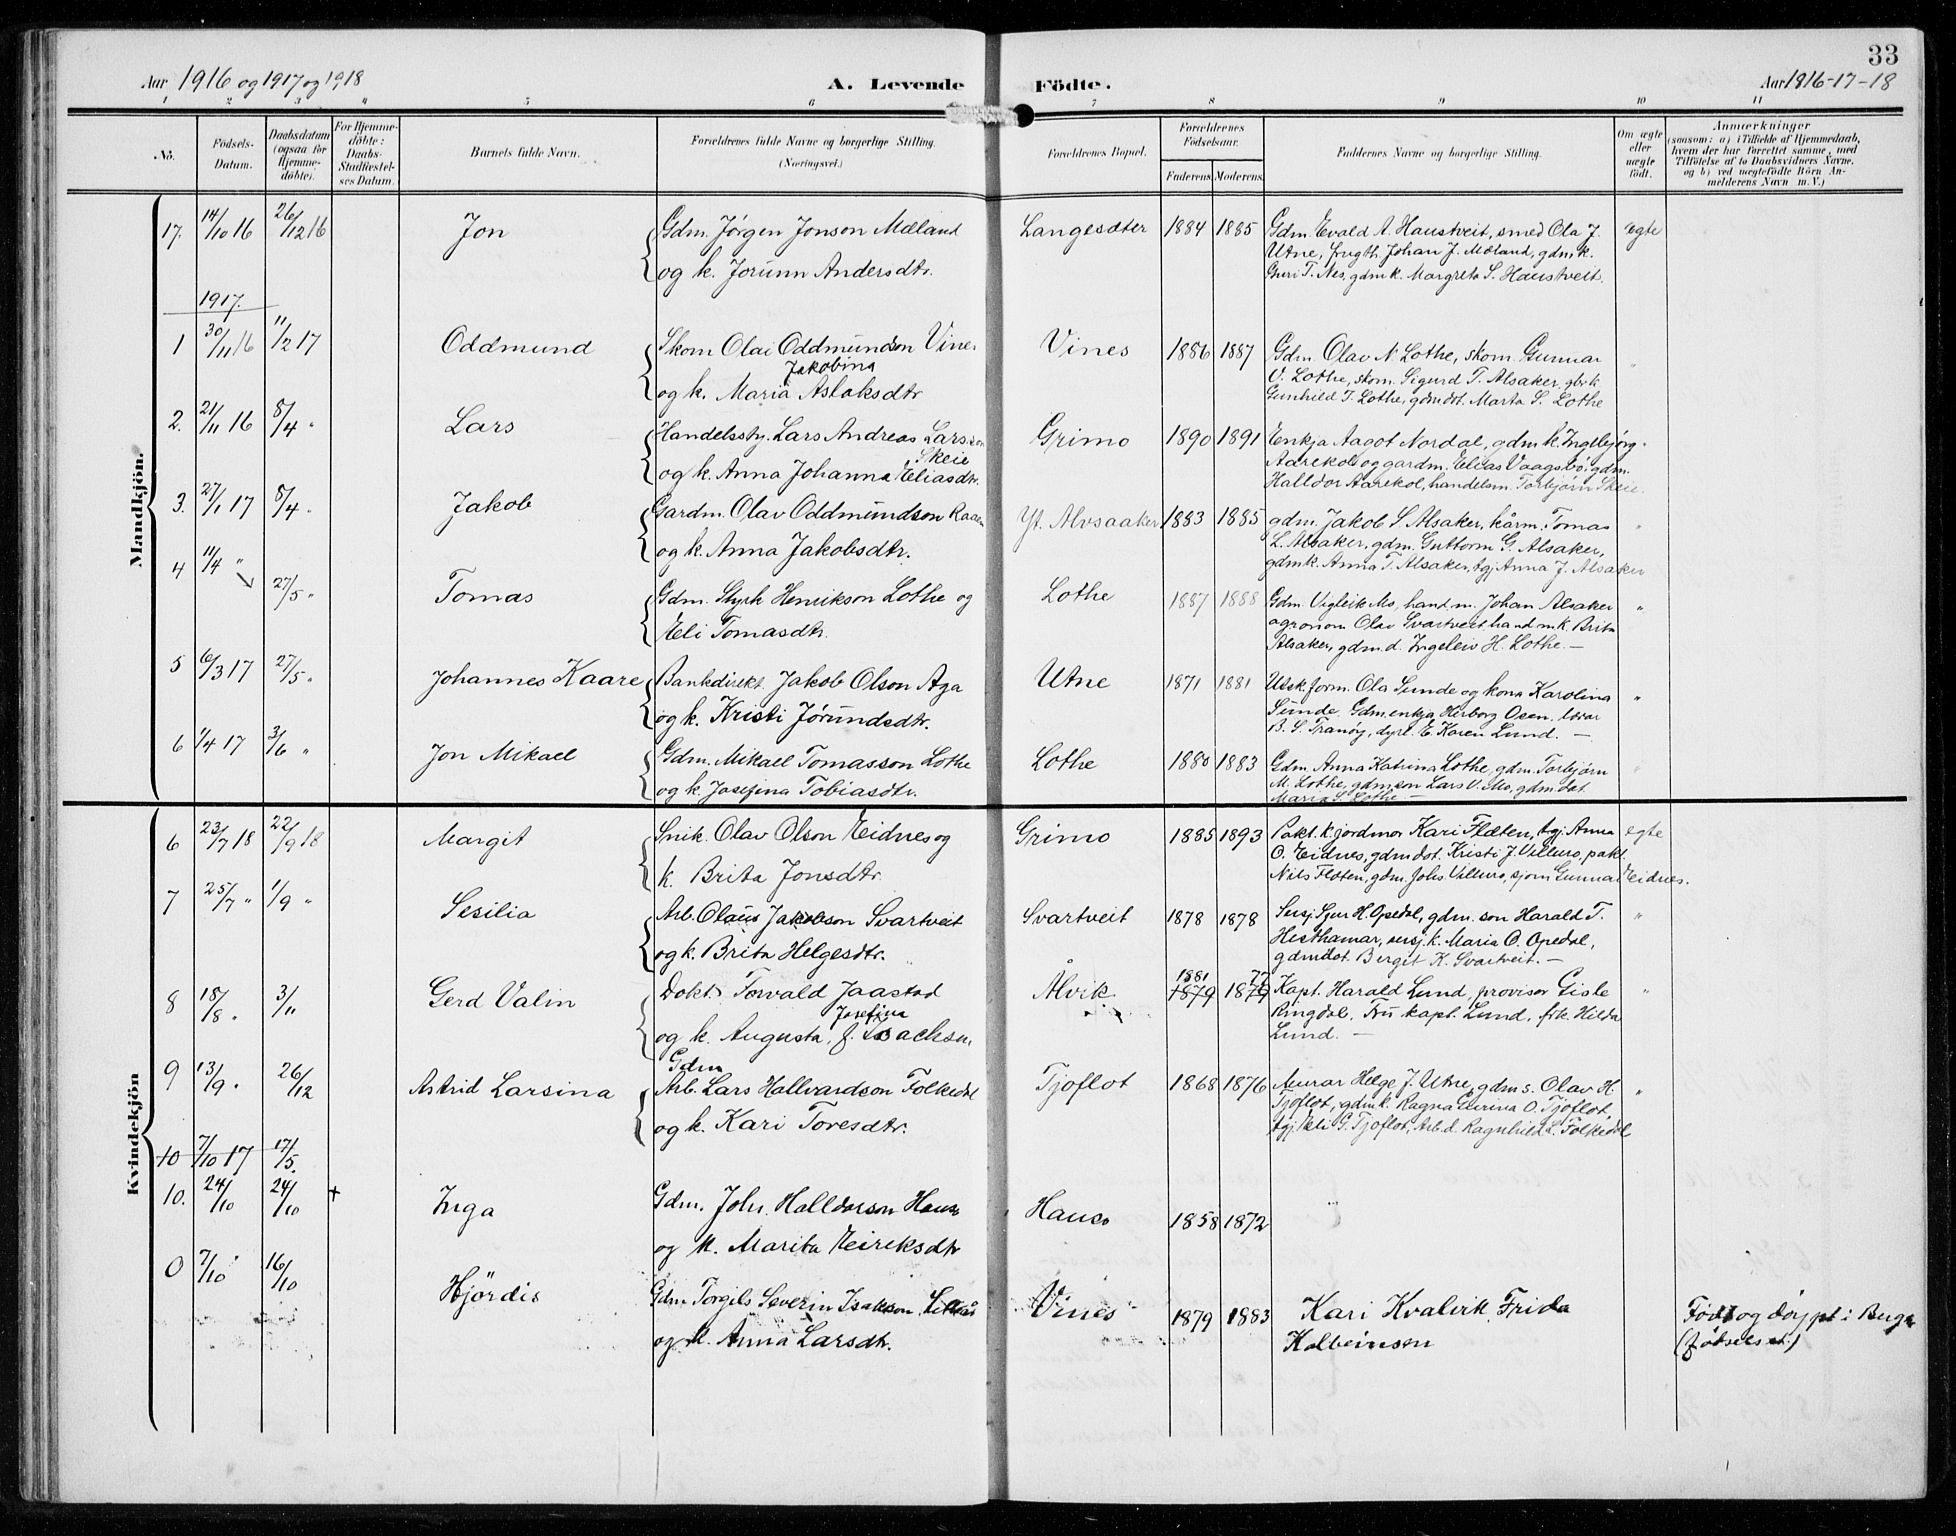 33
Aar 1916 og 1917 og 1918
A. Levende Födte.
Aar 1916-17-18
1 2 3 4 5 6 7 8 9 10 11
No.
Födsels-Datum.
Daabsdatum (ogsaa för Hjemme-döbte).
For Hjemme-döbte: Daabs-Stadfæstel-ses Datum.
Barnets fulde Navn.
Forældrenes fulde Navne og borgerlige Stilling. (Næringsvei.)
Forældrenes Bopæl.
Forældrenes Födselsaar.
Faderens. Moderens.
Faddernes Navne og borgerlige Stilling.
Om ægte eller uægte födt.
Anmærkninger
(saasom: a) i Tilfælde af Hjemmedaab,
hvem der har forrettet samme, med
Tilföielse af to Daabsvidners Navne,
og b) ved uægtefödte Börn An-
melderens Navn m. V.)
Mandkjön.
17. 14/10 16 26/12 16 Jon Gdm. Jørgen Jonson Mæland Langesæter 1884 1885 Gdm. Evald A. Haustveit, smed Ola J. egte
og k. Jorunn Andersdtr. Utne, Johan J. Mæland, gdm. k.
Guri T. Nes, gdm k. Margreta S. Haustveit.
1917.
1 30/11 16 11/2 17 Oddmund Skom Olai Oddmundson Vines Vines 1886 1887 Gdm Olav N. Lothe, skom. Gunnar "
Jakobina V. Lothe, skom. Sigurd T. Alsaker, gbr k.
og k. Maria Aslaksdtr Gunhild T. Lothe, gdm dot. Marta S. Lothe
2. 21/11 16 8/4 " Lars Handelssty. Lars Andreas Larsson Grimo 1890 1891 Enkja Aagot Nordal, gdm k. Ingebjörg
Skeie Aarekol og gardm. Elias Vaagsbö, gdm.
og k. Anna Johanna Eliasdtr. Halldor Aarekol, handelsm. Torbjörn Skeie.
3. 27/1 17 8/4 " Jakob Gardm. Olav Oddmundson Raaen Yt. Alvsaaker 1883 1885 gdm. Jakob S. Alsaker, kårm. Tomas "
og k. Anna Jakobsdtr. L. Alsaker, gdm. Guttorm G. Alsaker,
gdm k. Anna T. Alsaker, tgj Anna J. Alsaker
4 11/4 " 27/5 " Tomas Gdm. Styrk Henrikson Lothe og Lothe 1887 1888 Gdm. Vigleik Mo, hand m. Johan Alsaker "
Eli Tomasdtr. agronom Olav Svartveit hand m k. Brita
Alsaker, gdm. d. Ingeleiv H. Lothe. —
5 6/3 17 27/5 " Johannes Kaare Bankdirekt. Jakob Olson Aga Utne 1871 1881 Utsk. form. Ola Sunde og kona Karolina "
og k. Kristi Jörundsdtr. Sunde. Gdm. enkja Herborg Osen, lærar
B. S. Tranöy, dyrl. E. Karen Lund. —
6 1/4 17 3/6 " Jon Mikael Gdm. Mikael Tomasson Lothe Lothe 1880 1883 Gdm. Anna Katrina Lothe, gdm. Torbjörn "
og k. Josefina Tobiasdtr. M. Lothe, gdm son Lars V. Mo, gdm. dot.
Maria S. Lothe —
Kvindekjön
6 23/7 18 22/9 18 Margit Snik. Olav Olson Eidnes og Grimo 1885 1893 Pakt. k. jordmor Kari Flöten, tgj. Anna egte
k. Brita Jonsdtr. O. Eidnes, gdm dot. Kristi J. Villure, pakt.
Nils Flöten, gdm. Johs. Villure, sjom Gunnar Eidnes.
7 25/7 " 1/9 " Sesilia Arb. Olaus Jakobson Svartveit Svartveit 1878 1878 Sersj. Sjur H. Opedal, gdm. son Harald T. "
og k. Brita Helgesdtr. Hesthamar, sersj. k. Maria O. Opedal,
gdm dot Bergit K. Svartveit. —
8 18/8 " 3/11 Gerd Valin Dokt. Torvald Jaastad Ålvik 1881 77 Kapt. Harald Lund, provisor Gisle "
Josefina 1879 1879 Ringdal, Fru kapt. Lund, frk. Hilda
og k. Augusta, f. Isachsen Lund. —
9 13/9 " 26/12 Astrid Larsina Gdm Arb. Lars Hallvardson Folkedal Tjoflot 1868 1876 Murar Helge J. Utne, gdm s. Olav H. "
og k. Kari Toresdtr. Tjoflot, gdm k. Ragna Elerina O. Tjoflot,
tgj. Eli G. Tjoflot, Arb. d. Ragnhild L. Folkedal
10 7/10 17 17/5.
10. 24/10 24/10 + Inga Gdm. Joh. Halldorson Hauso Hauso 1858 1872
og k. Marita Eireksdtr
0 7/10 " 16/10 Hjördis Gdm Torgils Severin Isakson Vines 1879 1883 Kari Kvalvik, Frida Födt og döypt i
og k. Anna Larsdtr. Kolbeinsen (födselsst.)